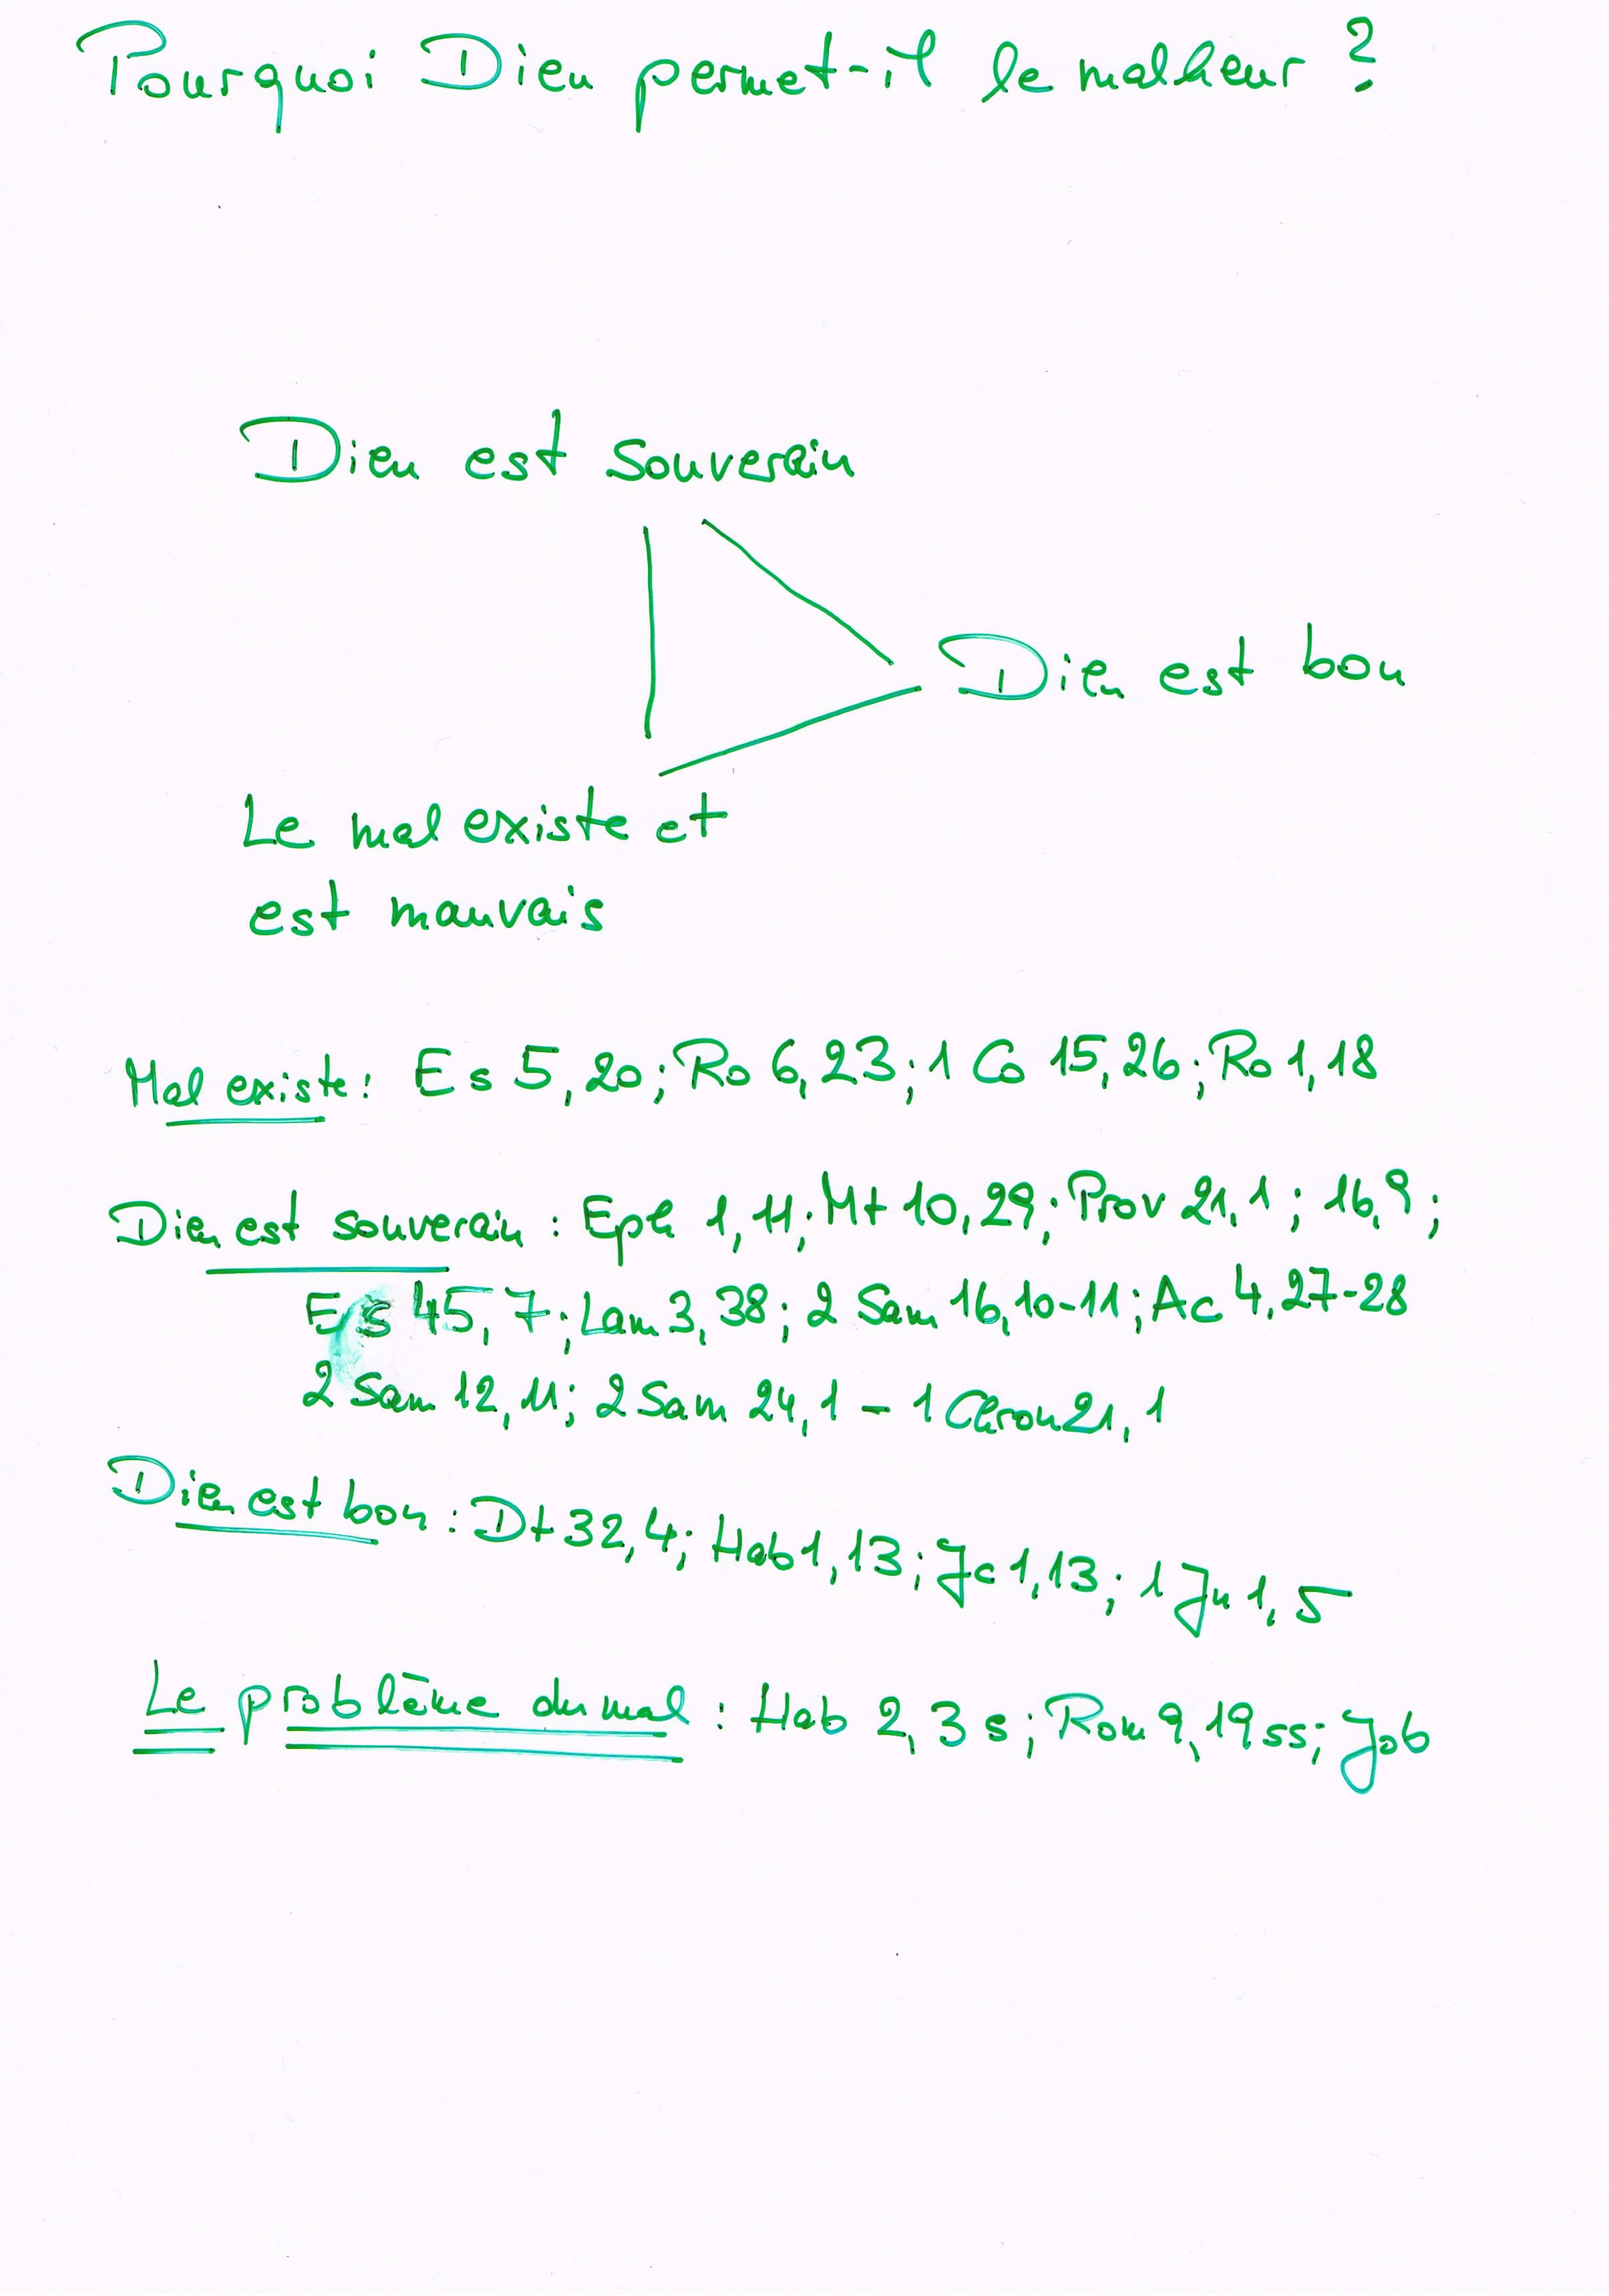 Pourquoi Dieu permet-il le malheur ?
Dieu est souverain
Dieu est bon
Le mal existe et
est mauvais
Mal existe : Es 5,20; Ro 6,23; 1 Co 15,26; Ro 1,18
Dieu est souverain : Eph 1,11; Mt 10,29; Prov 21,1; 16,9;
Es 45,7; Lam 3,38; 2 Sam 16,10-11; Ac 4,27-28
2 Sam 12,11; 2 Sam 24,1 - 1 Chron 21,1
Dieu est bon : Dt 32,4; Hab 1,13; Jc 1,13; 1 Jn 1,5
Le problème du mal : Hab 2,3s; Rom 9,19ss; Job